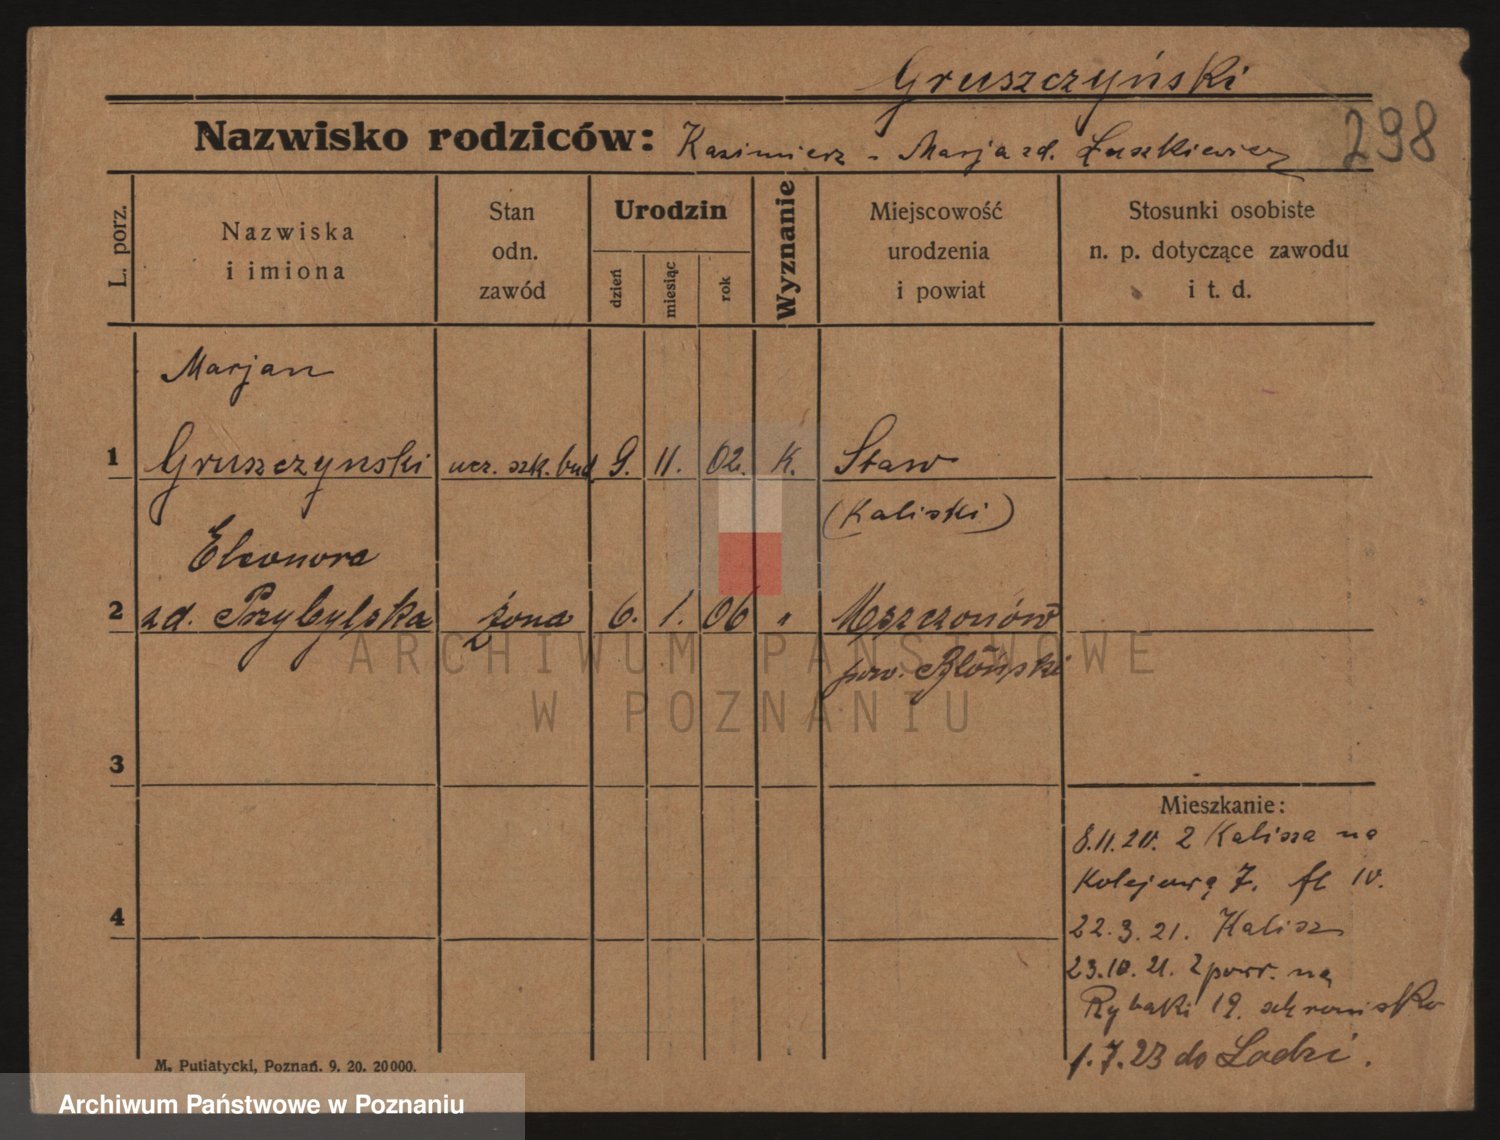 Gruszczyński
298
Nazwisko rodziców: Kazimierz - Marja zd. Łuszkiewicz
L. porz.
Nazwiska
i imiona
Stan
odn.
zawód
Urodzin
dzień
miesiąc
rok
Wyznanie
Miejscowość
urodzenia
i powiat
Stosunki osobiste
n. p. dotyczące zawodu
i t. d.
Marjan
1 Gruszczynski ucz. szk. bud. 9. 11. 02. K. Staw
(Kaliski)
Eleonora
2 zd. Przybylska żona 6. 1. 06 " Mszczonów
pow. Błoński
3
Mieszkanie:
8.11.20. z Kalisza na
Kolejową 7. IV.
4
22.3.21. Kalisz
23.10.21. z powr. na
Rybaki 19. schronisko
1.7.23 do Łodzi.
M. Putiatycki, Poznań. 9. 20. 20000.
ARCHIWUM PAŃSTWOWE
W POZNANIU
Archiwum Państwowe w Poznaniu